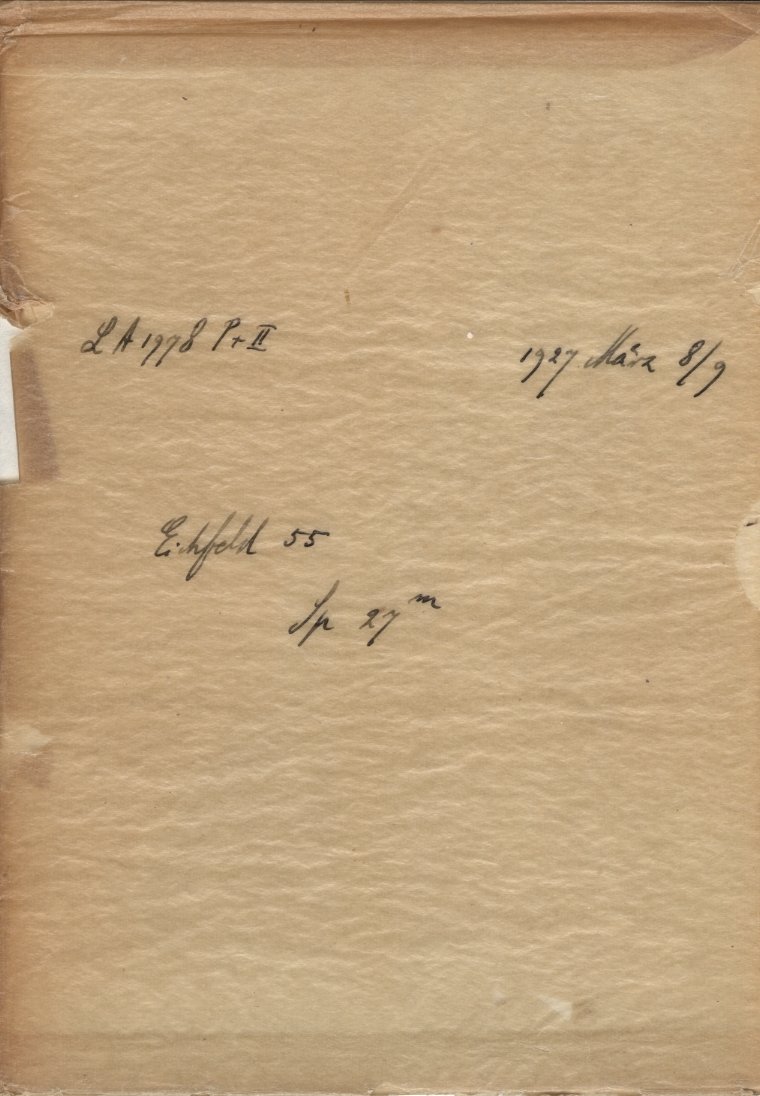 LA 1978 Pr II 1927 März 8/9
Eichfeld 55
Sp 27 m